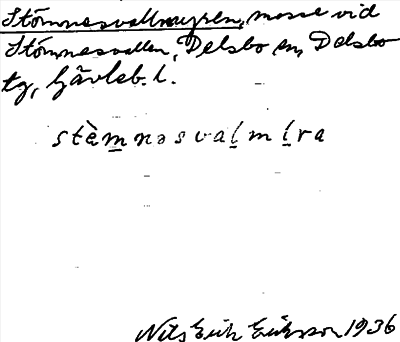 Stömnesvallmyren, mosse vid
Stömnesvallen, Delsbo sn, Delsbo
tg, Gävleb. l.
stèm̲nəsval̲ml̲ra
Nils Erik Eriksson 1936